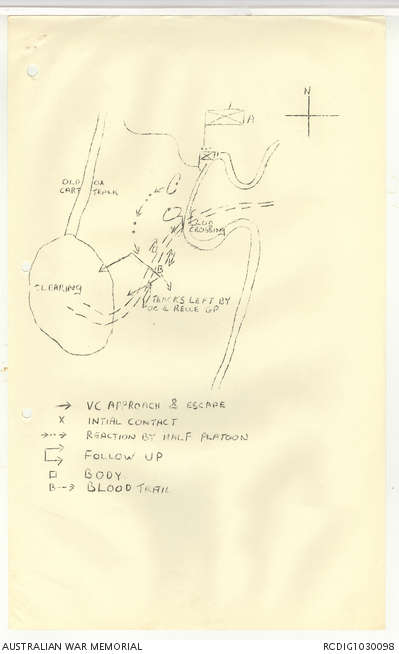 N
A
OLD OX
CART TRACK
C
LOG
CROSSING
B
CLEARING
TRACKS LEFT BY
OC & RECCE GP
→ VC APPROACH & ESCAPE
X INTIAL CONTACT
REACTION BY HALF PLATOON
FOLLOW UP
BODY
B--→ BLOOD TRAIL
AUSTRALIAN WAR MEMORIAL
RCDIG1030098